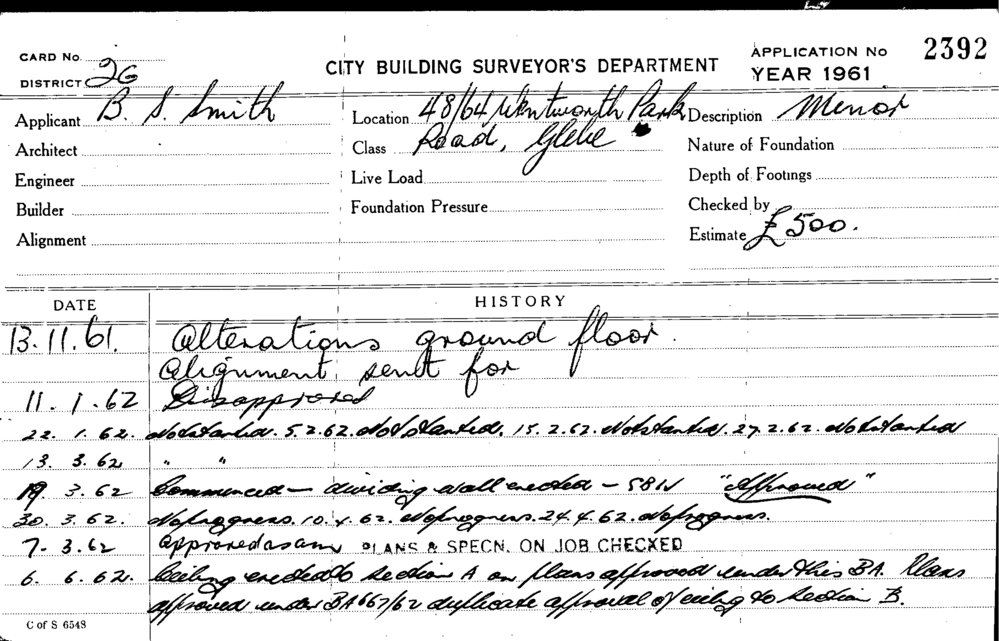 CARD No. 26
DISTRICT
CITY BUILDING SURVEYOR'S DEPARTMENT
APPLICATION No 2392
YEAR 1961
Applicant B. S. Smith
Location 48/64 Wentworth Park
Description Minor
Architect
Class Road, Glebe
Nature of Foundation
Engineer
Live Load
Depth of Footings
Builder
Foundation Pressure
Checked by
Alignment
Estimate £500.
DATE
HISTORY
13.11.61. Alterations ground floor.
Alignment sent for
11.1.62 Disapproved
22.1.62. Not started. 5.2.62. Not started. 15.2.62. Not started. 27.2.62. Not started
13.3.62 " "
19.3.62 Commenced – dividing wall erected – 581N "Approved"
30.3.62. No progress. 10.4.62. No progress. 24.4.62. No progress.
7.3.62 Approved as am PLANS & SPECN. ON JOB CHECKED
6.6.62. Ceiling erected to section A on plans approved under this BA. Plans
approved under BA 667/62 duplicate approval of ceiling to section B.
C of S 6548